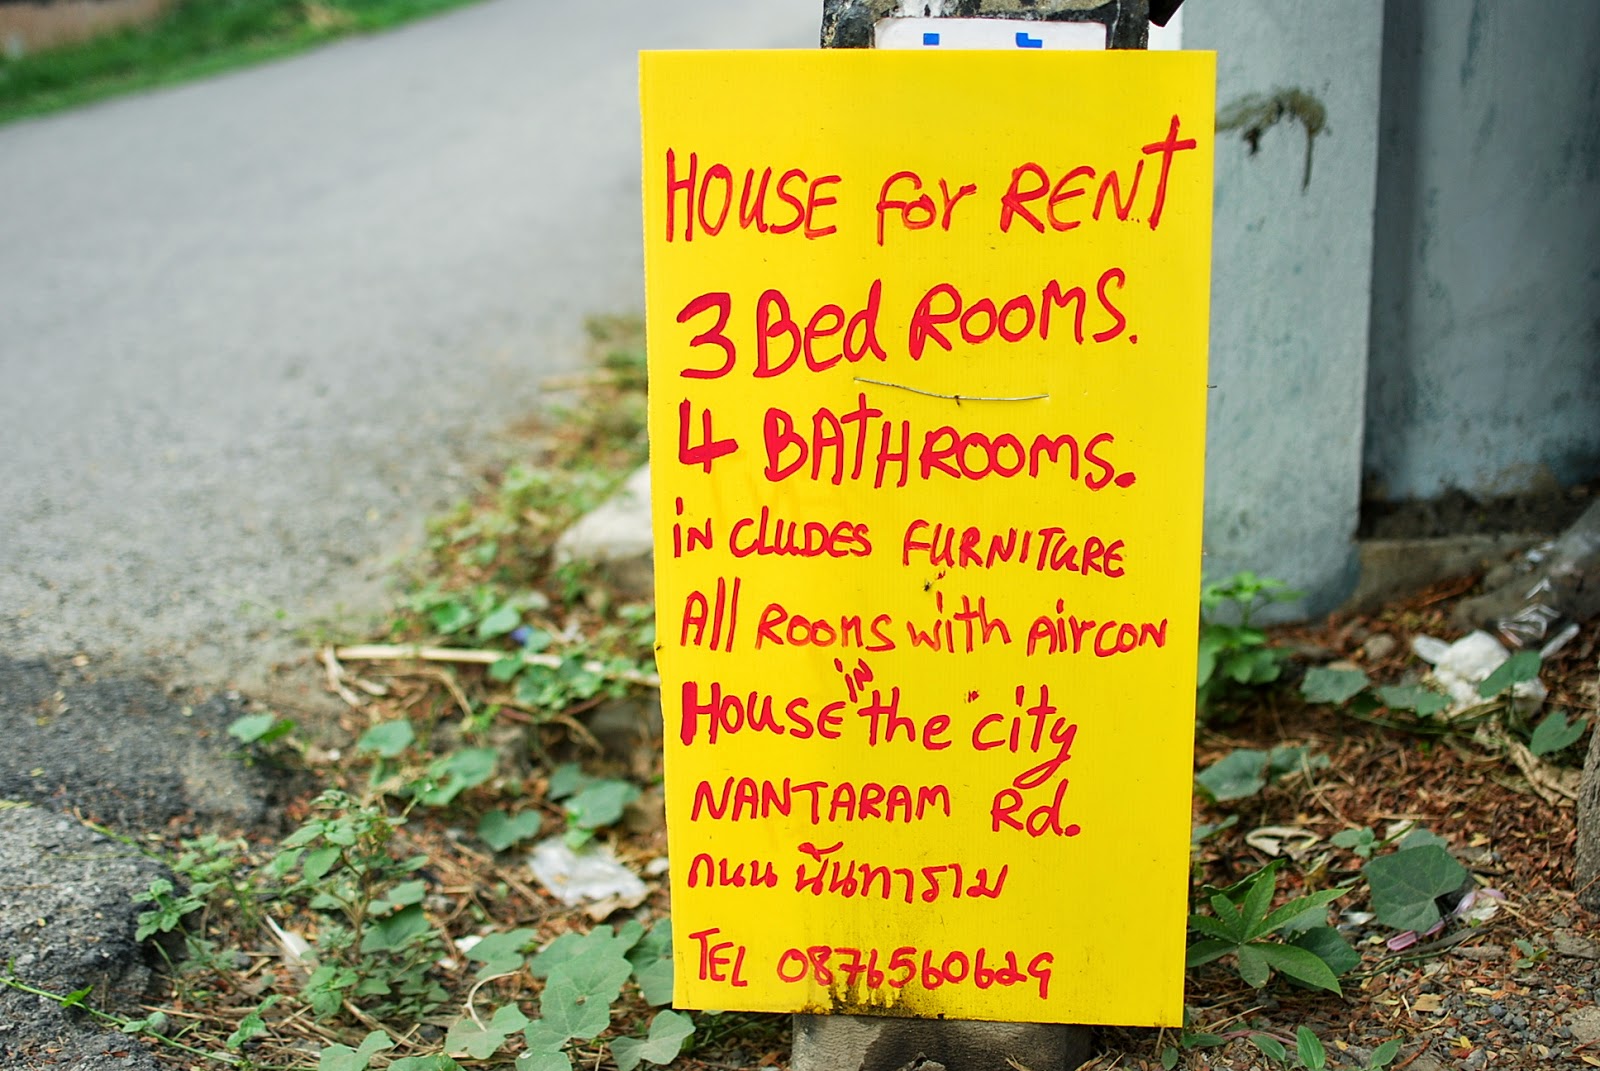 HOUSE for RENT
3 Bed ROOMS.
4 BATHROOMS.
iN CLUDES FURNITURE
All ROOMS with AirCON
HOUSE IN the city
NANTARAM Rd.
ถนน นันทาราม
TEL 0876560629